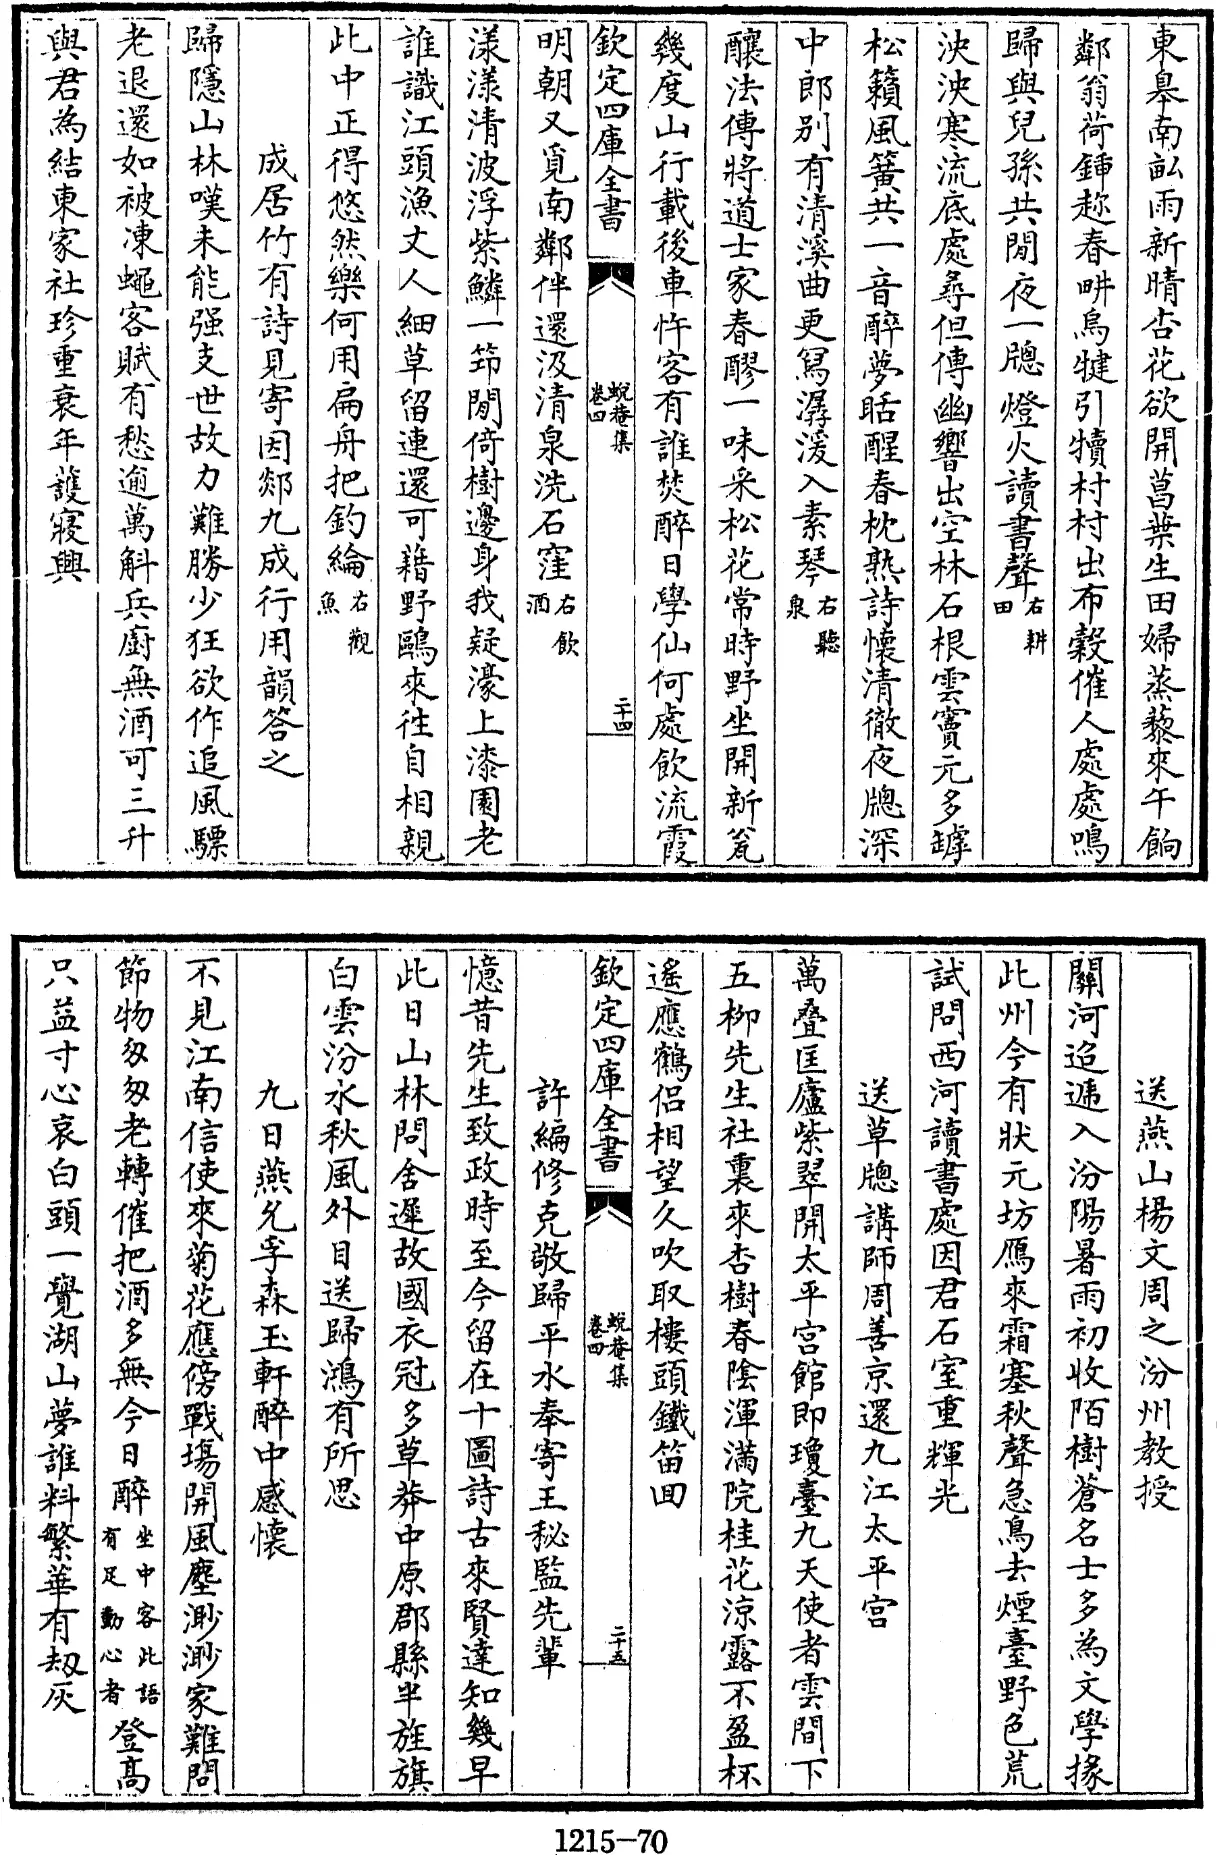 東皋南畝雨新晴杏花欲開菖葉生田婦蒸藜來午餉
鄰翁荷鍤趂春畊烏犍引犢村村出布穀催人處處鳴
歸與兒孫共閒夜一牕燈火讀書聲右耕田
泱泱寒流底處尋但傳幽響出空林石根雲竇元多罅
松籟風簧共一音醉夢聒醒春枕熟詩懷清徹夜牕深
中郎别有清溪曲更冩潺湲入素琴右聽泉
釀法傳將道士家春醪一味采松花常時野坐開新瓮
幾度山行載後車忤客有誰焚醉日學仙何處飲流霞
欽定四庫全書
蛻菴集
卷四
二十四
明朝又覓南鄰伴還汲清泉洗石窪右飲酒
漾漾清波浮紫鱗一笻閒倚樹邊身我疑濠上漆園老
誰識江頭漁丈人細草留連還可藉野鷗來往自相親
此中正得悠然樂何用扁舟把釣綸右觀魚
成居竹有詩見寄因郯九成行用韻答之
歸隱山林嘆未能强支世故力難勝少狂欲作追風驃
老退還如被凍蠅客賦有愁逾萬斛兵廚無酒可三升
與君為結東家社珍重衰年護寢興
送燕山楊文周之汾州教授
關河迢遞入汾陽暑雨初收陌樹蒼名士多為文學掾
此州今有狀元坊鴈來霜塞秋聲急鳥去煙臺野色荒
試問西河讀書處因君石室重輝光
送草牕講師周善京還九江太平宫
萬疊匡廬紫翠開太平宫館即瓊臺九天使者雲間下
五栁先生社裏來杏樹春陰渾滿院桂花涼露不盈杯
遥應鶴侣相望久吹取樓頭鐵笛回
欽定四庫全書
蛻菴集
卷四
二十五
許編修克敬歸平水奉寄王秘監先輩
憶昔先生致政時至今留在十圖詩古來賢達知幾早
此日山林問舍遲故國衣冠多草莽中原郡縣半旌旗
白雲汾水秋風外目送歸鴻有所思
九日燕允孚森玉軒醉中感懷
不見江南信使來菊花應傍戰塲開風塵渺渺家難問
節物匆匆老轉催把酒多無今日醉坐中客此語有足動心者登高
只益寸心哀白頭一覺湖山夢誰料繁華有刼灰
1215-70